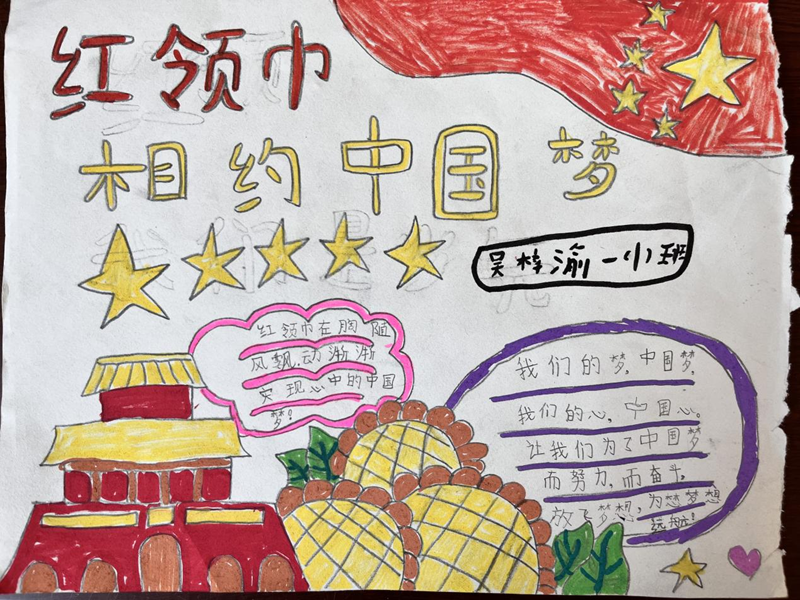 红领巾
相约中国梦
吴梓渝一小班
红领巾在胸随
风飘动渐渐
实现心中的中国
梦!
我们的梦,中国梦,
我们的心,中国心。
让我们为了中国梦
而努力,而奋斗,
放飞梦想,为梦想
远航!